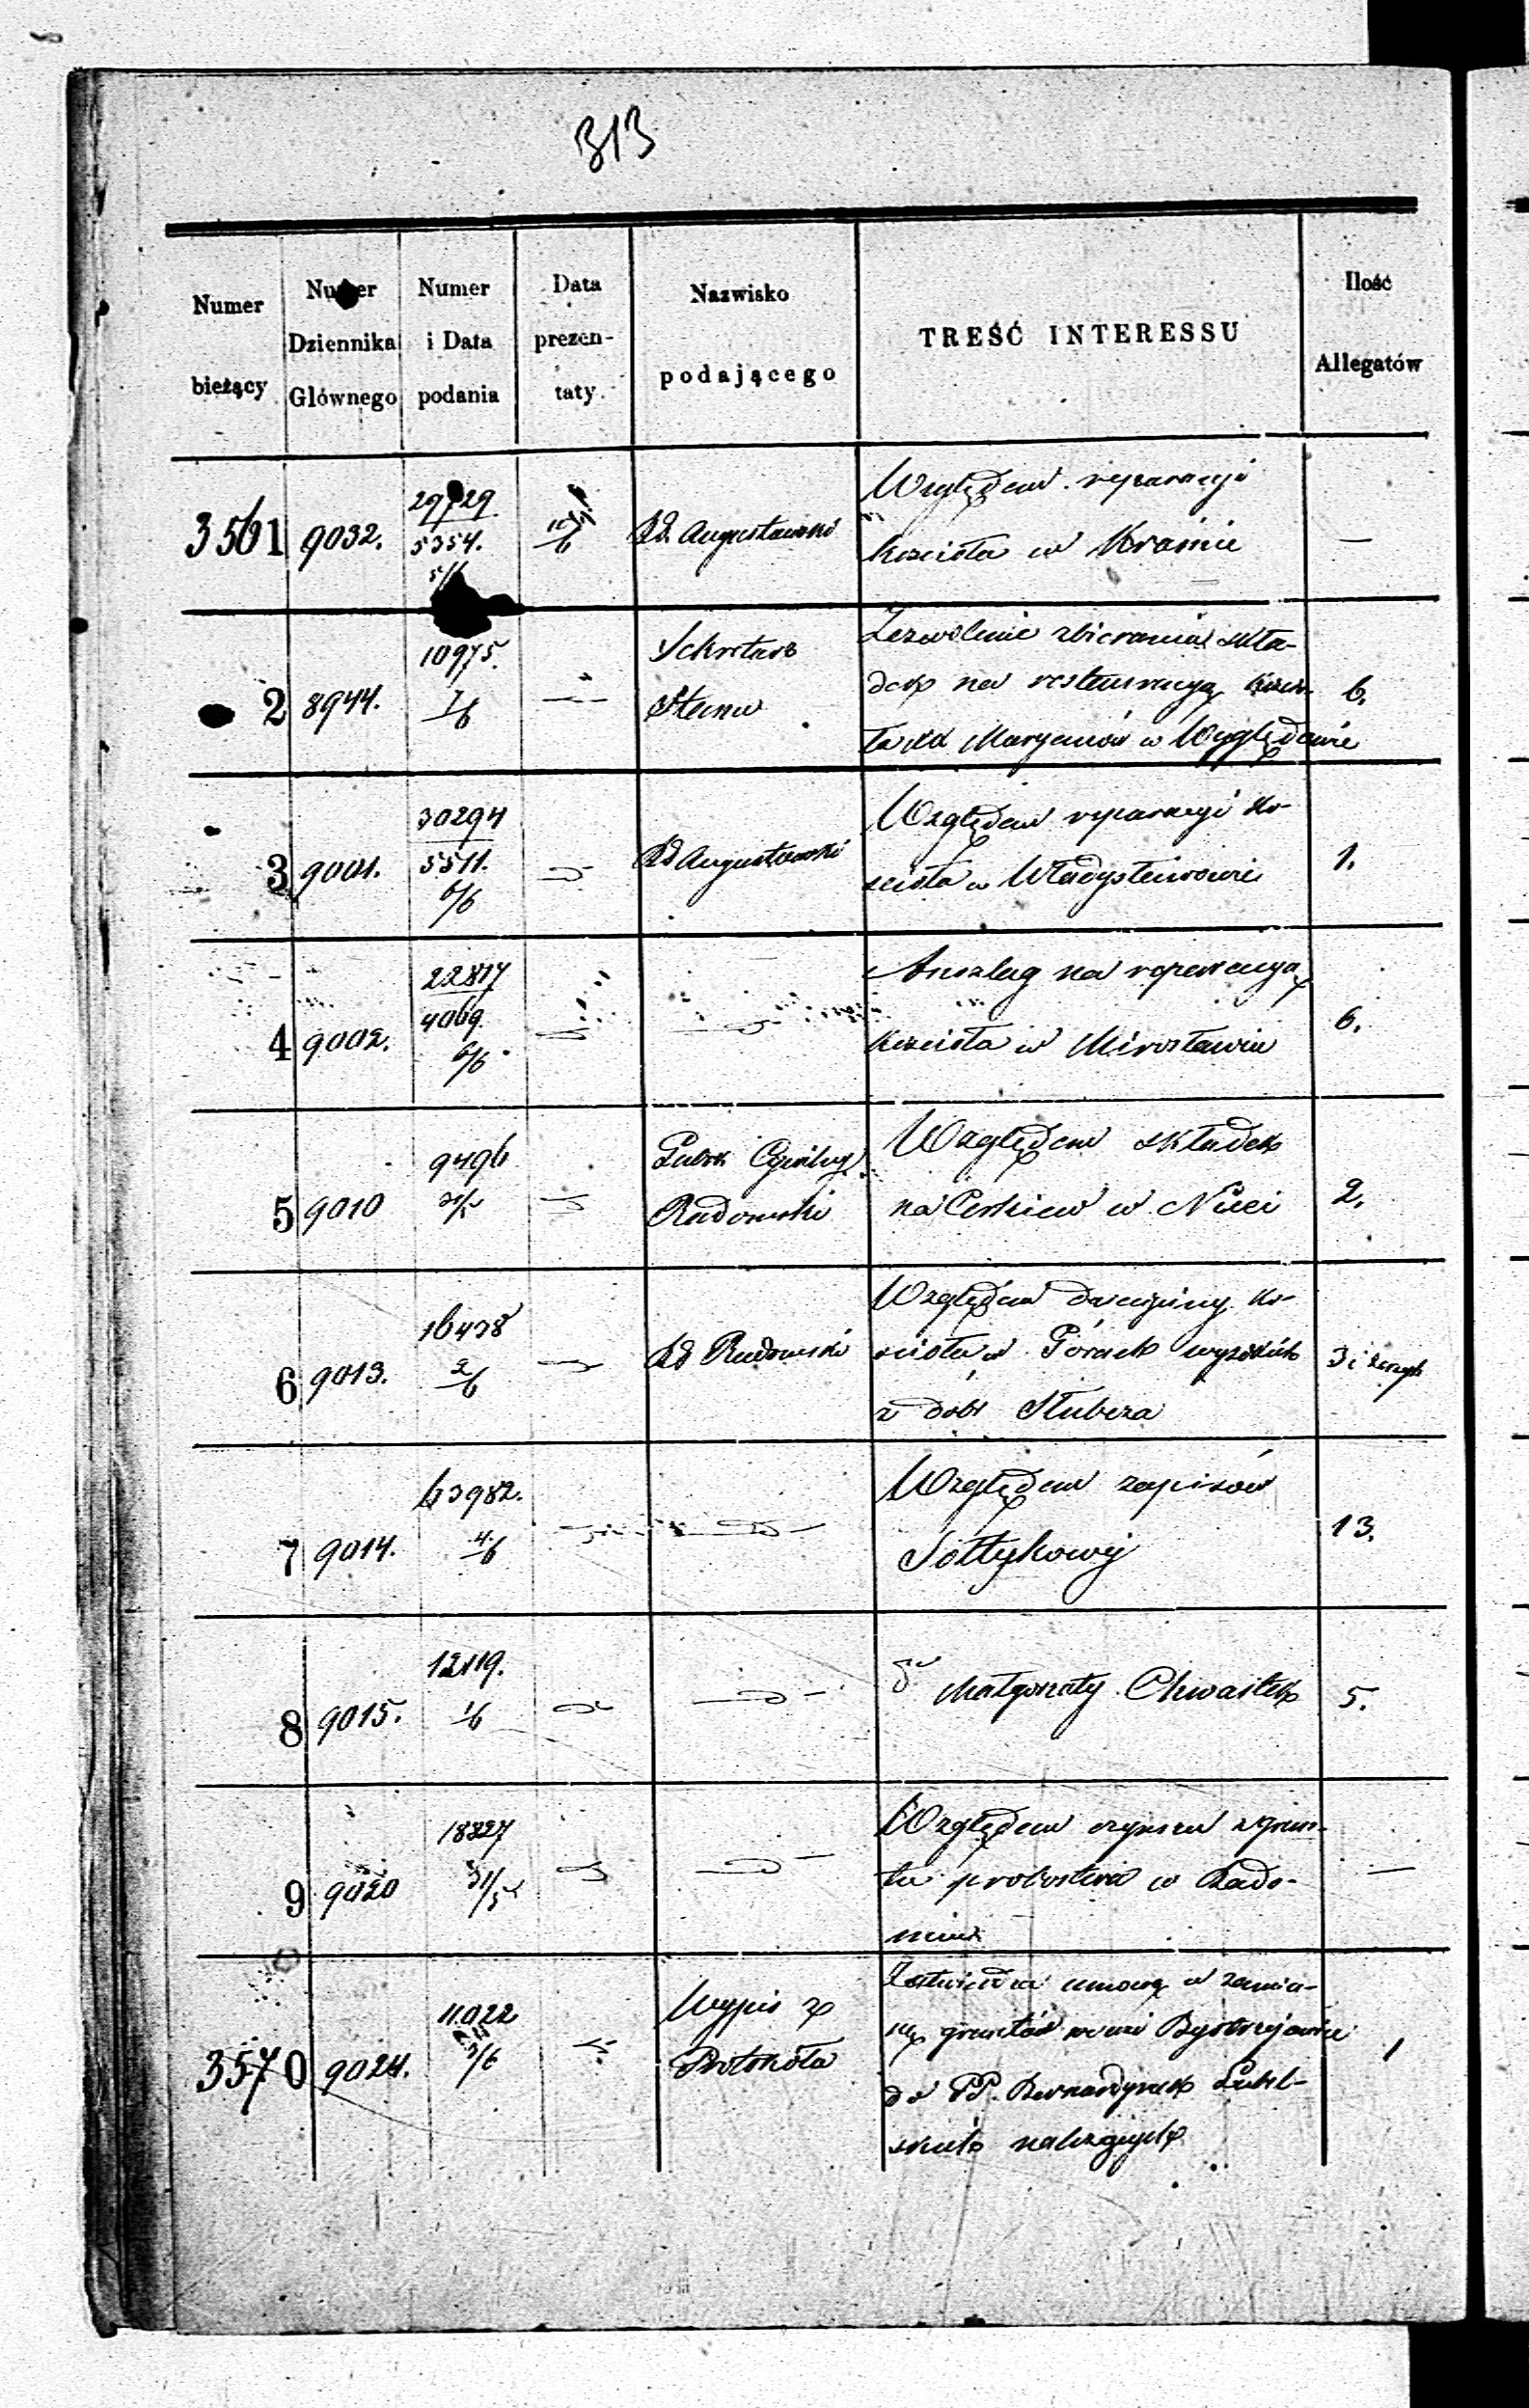 313
Numer bieżący
Numer Dziennika Głównego
Numer i Data podania
Data prezen-taty
Nazwisko podającego
TREŚĆ INTERESSU
Ilość Allegatów
3561 9032. 29729 5354. 10/6 Rd. Augustowski
Względem reparacyi
kościoła w Kraśnie —
2 8944. 10975. 1/6 Sekretarz Stanu
Zezwolenie zbierania skła-
dek na restauracyą kościo-
ła XX Maryanów w 6.
3 9001. 30294 5511. 6/6 Rd Augustowski
Względem reparacyi ko-
scioła w Władysławowie 1.
4 9002. 22817 4069. 6/6
Anszlag na reperacyą
kościoła w Mirosławiu 6.
5 9010 9496 31/5 Gubr. Cywilny Radomski
Względem składek
na Cerkiew w Nicei 2.
6 9013. 16438 2/6 Rd Radomski
Względem dziesięciny ko-
scioła w Górach wysokich
z dóbr Słubcza 3 i zeszyt
7 9014. 63982. 4/6
Względem zapisów
Sołtykowej 13.
8 9015. 12119. 1/6
do Małgorzaty Chwastek 5.
9 9020 18327 31/5
Względem czynszu z grun-
tu probostwa w Rado-
miu —
3570 9024. 11022 3/6 Wypis z Protokóła
Zatwierdza umowę w zamia-
nę gruntów we wsi Bystrzejowice
do PP. Bernardynek Lubel-
skich należących 1